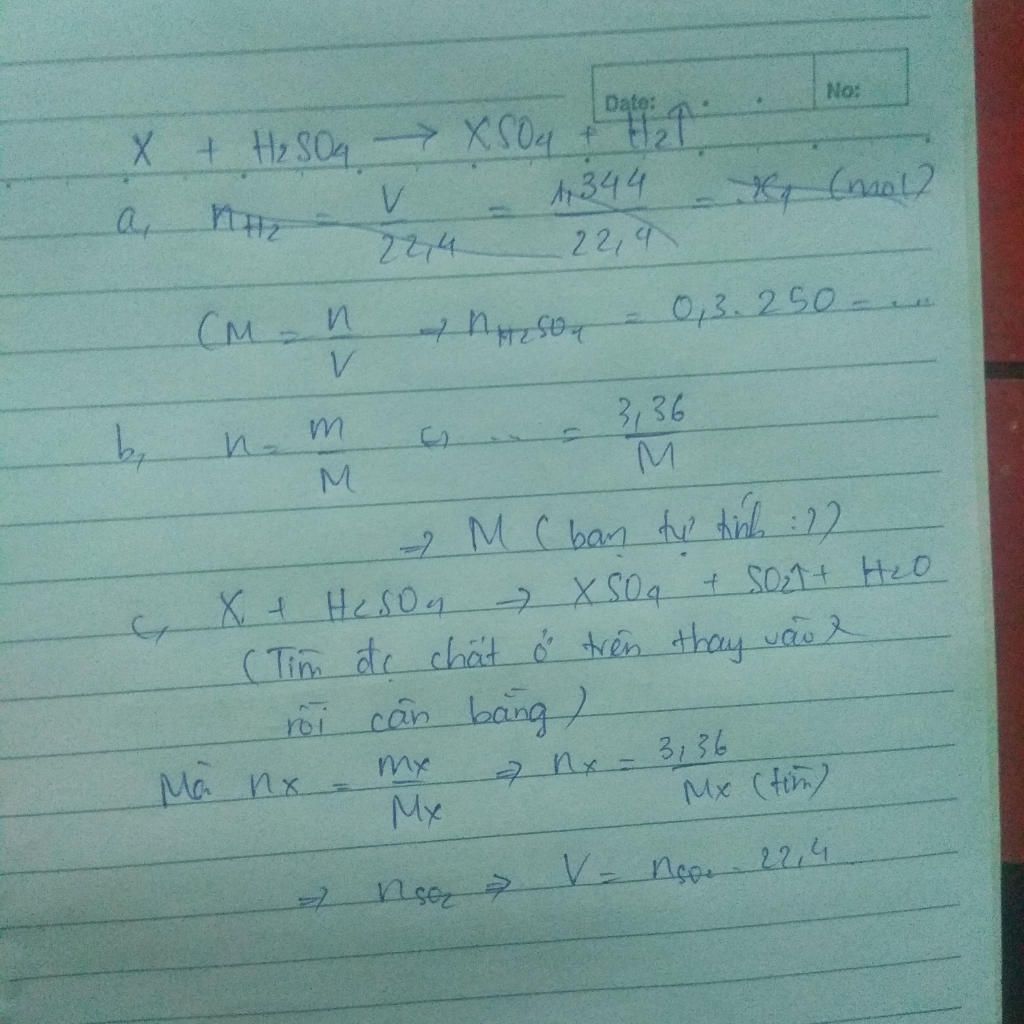 Date: . . No:
X + H₂SO₄ → XSO₄ + H₂↑
a, nH₂ = V/22,4 = 1,344/22,4 = (mol)
CM = n/V → nH₂SO₄ = 0,3.250 = ...
b, n = m/M ... = 3,36/M
→ M (bạn tự tính :))
c, X + H₂SO₄ → XSO₄ + SO₂↑ + H₂O
(Tìm đc chất ở trên thay vào
rồi cân bằng)
Mà nx = mx/Mx → nx = 3,36/Mx (tìm)
→ nSO₂ → V = nSO₂ . 22,4